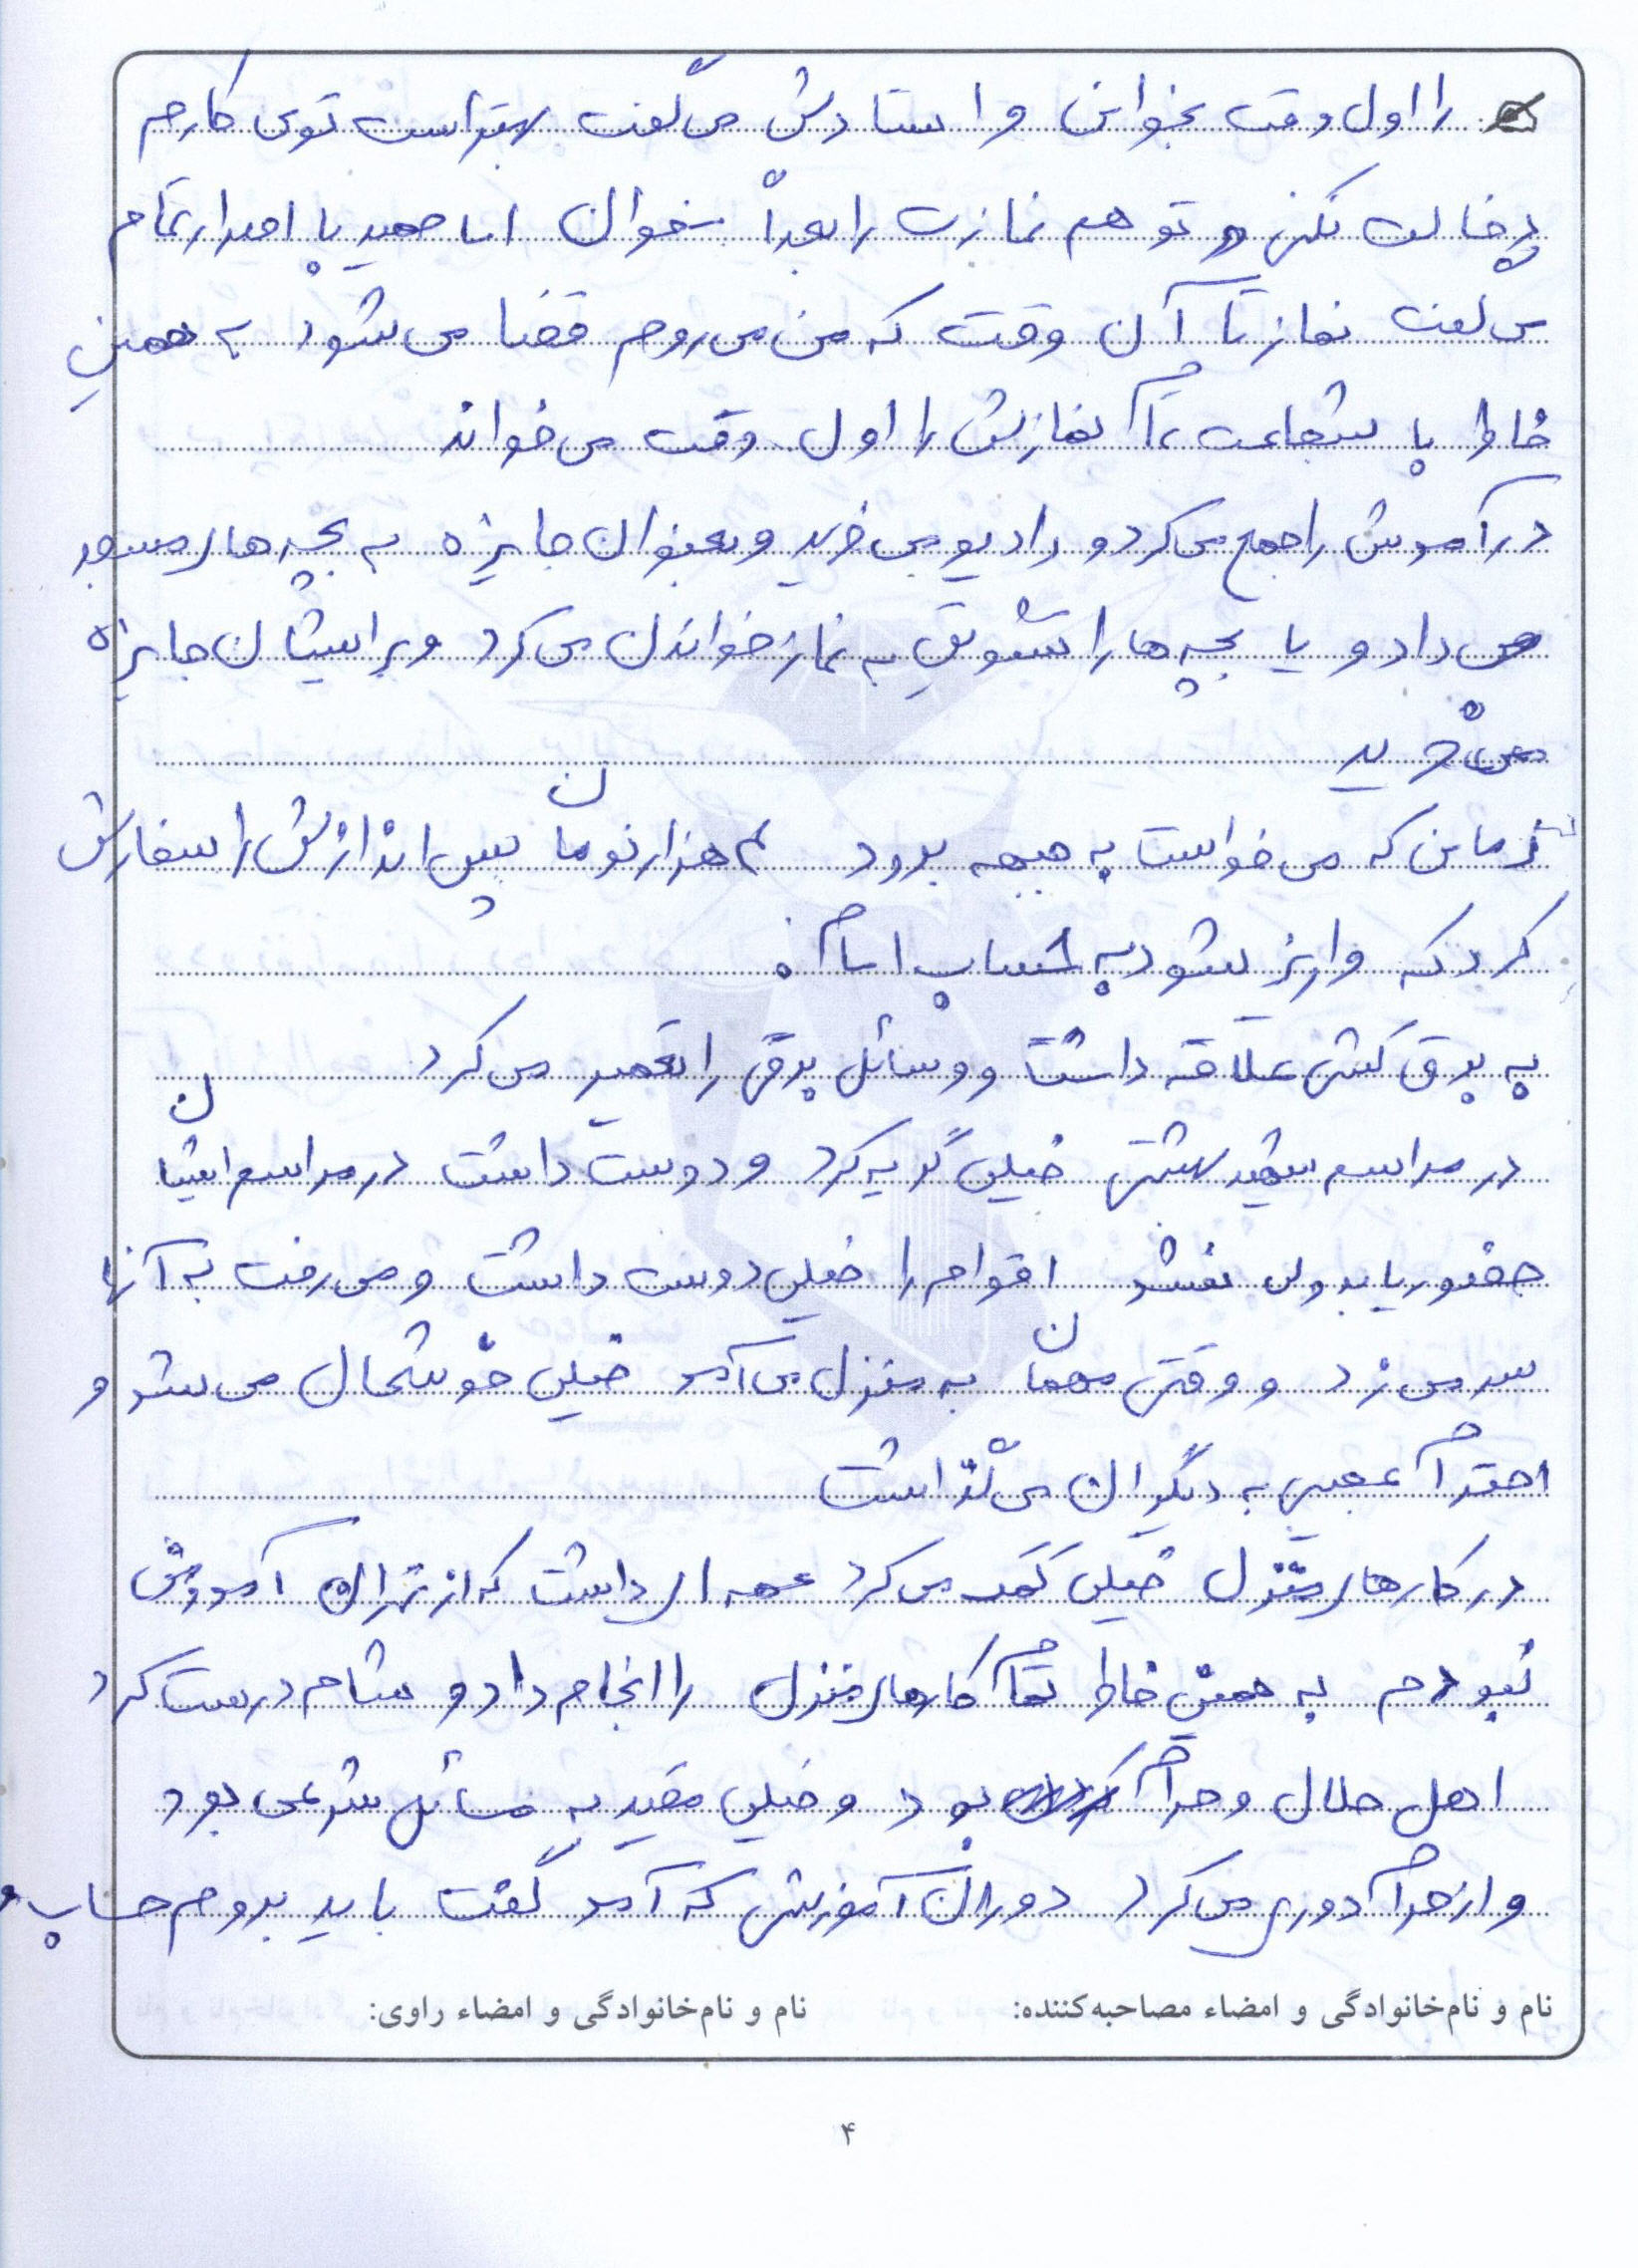 را اول وقت بخوانی و استادش می گفت بهتر است توی کارم
دخالت نکنی و تو هم نمازت را بعداً بخوان اما حمید با اصرار تمام
می گفت نماز تا آن وقت که من می روم قضا می شود به همین
خاطر با شجاعت تمام نمازش را اول وقت می خواند
درآمدش را جمع می کرد و رادیو می خرید و بعنوان جایزه به بچه های مسجد
می داد و یا بچه ها را تشویق به نماز خواندن می کرد و برایشان جایزه
می خرید
زمانی که می خواست به جبهه برود هزار تومان پس اندازش را سفارش
کرد که واریز شود به حساب امام.
به برق کشی علاقه داشت و وسائل برقی را تعمیر می کرد
در مراسم شهید بهشتی خیلی گریه کرد و دوست داشت در مراسم ایشان
حضور یابد ولی نشد اقوام را خیلی دوست داشت و می رفت به آنها
سر می زد و وقتی مهمان به منزل می آمد خیلی خوشحال می شد و
احترام عجیبی به دیگران می گذاشت
در کارهای منزل خیلی کمک می کرد عمه ای داشت که از تهران آمد و من
نبودم به همین خاطر تمام کارهای منزل را انجام داد و شام درست کرد
اهل حلال و حرام بود و خیلی مقید به مسائل شرعی بود
و از حرام دوری می کرد دوران آموزشی که آمد گفت باید بروم حساب و
نام و نام‌خانوادگی و امضاء مصاحبه‌کننده: نام و نام‌خانوادگی و امضاء راوی:
۴